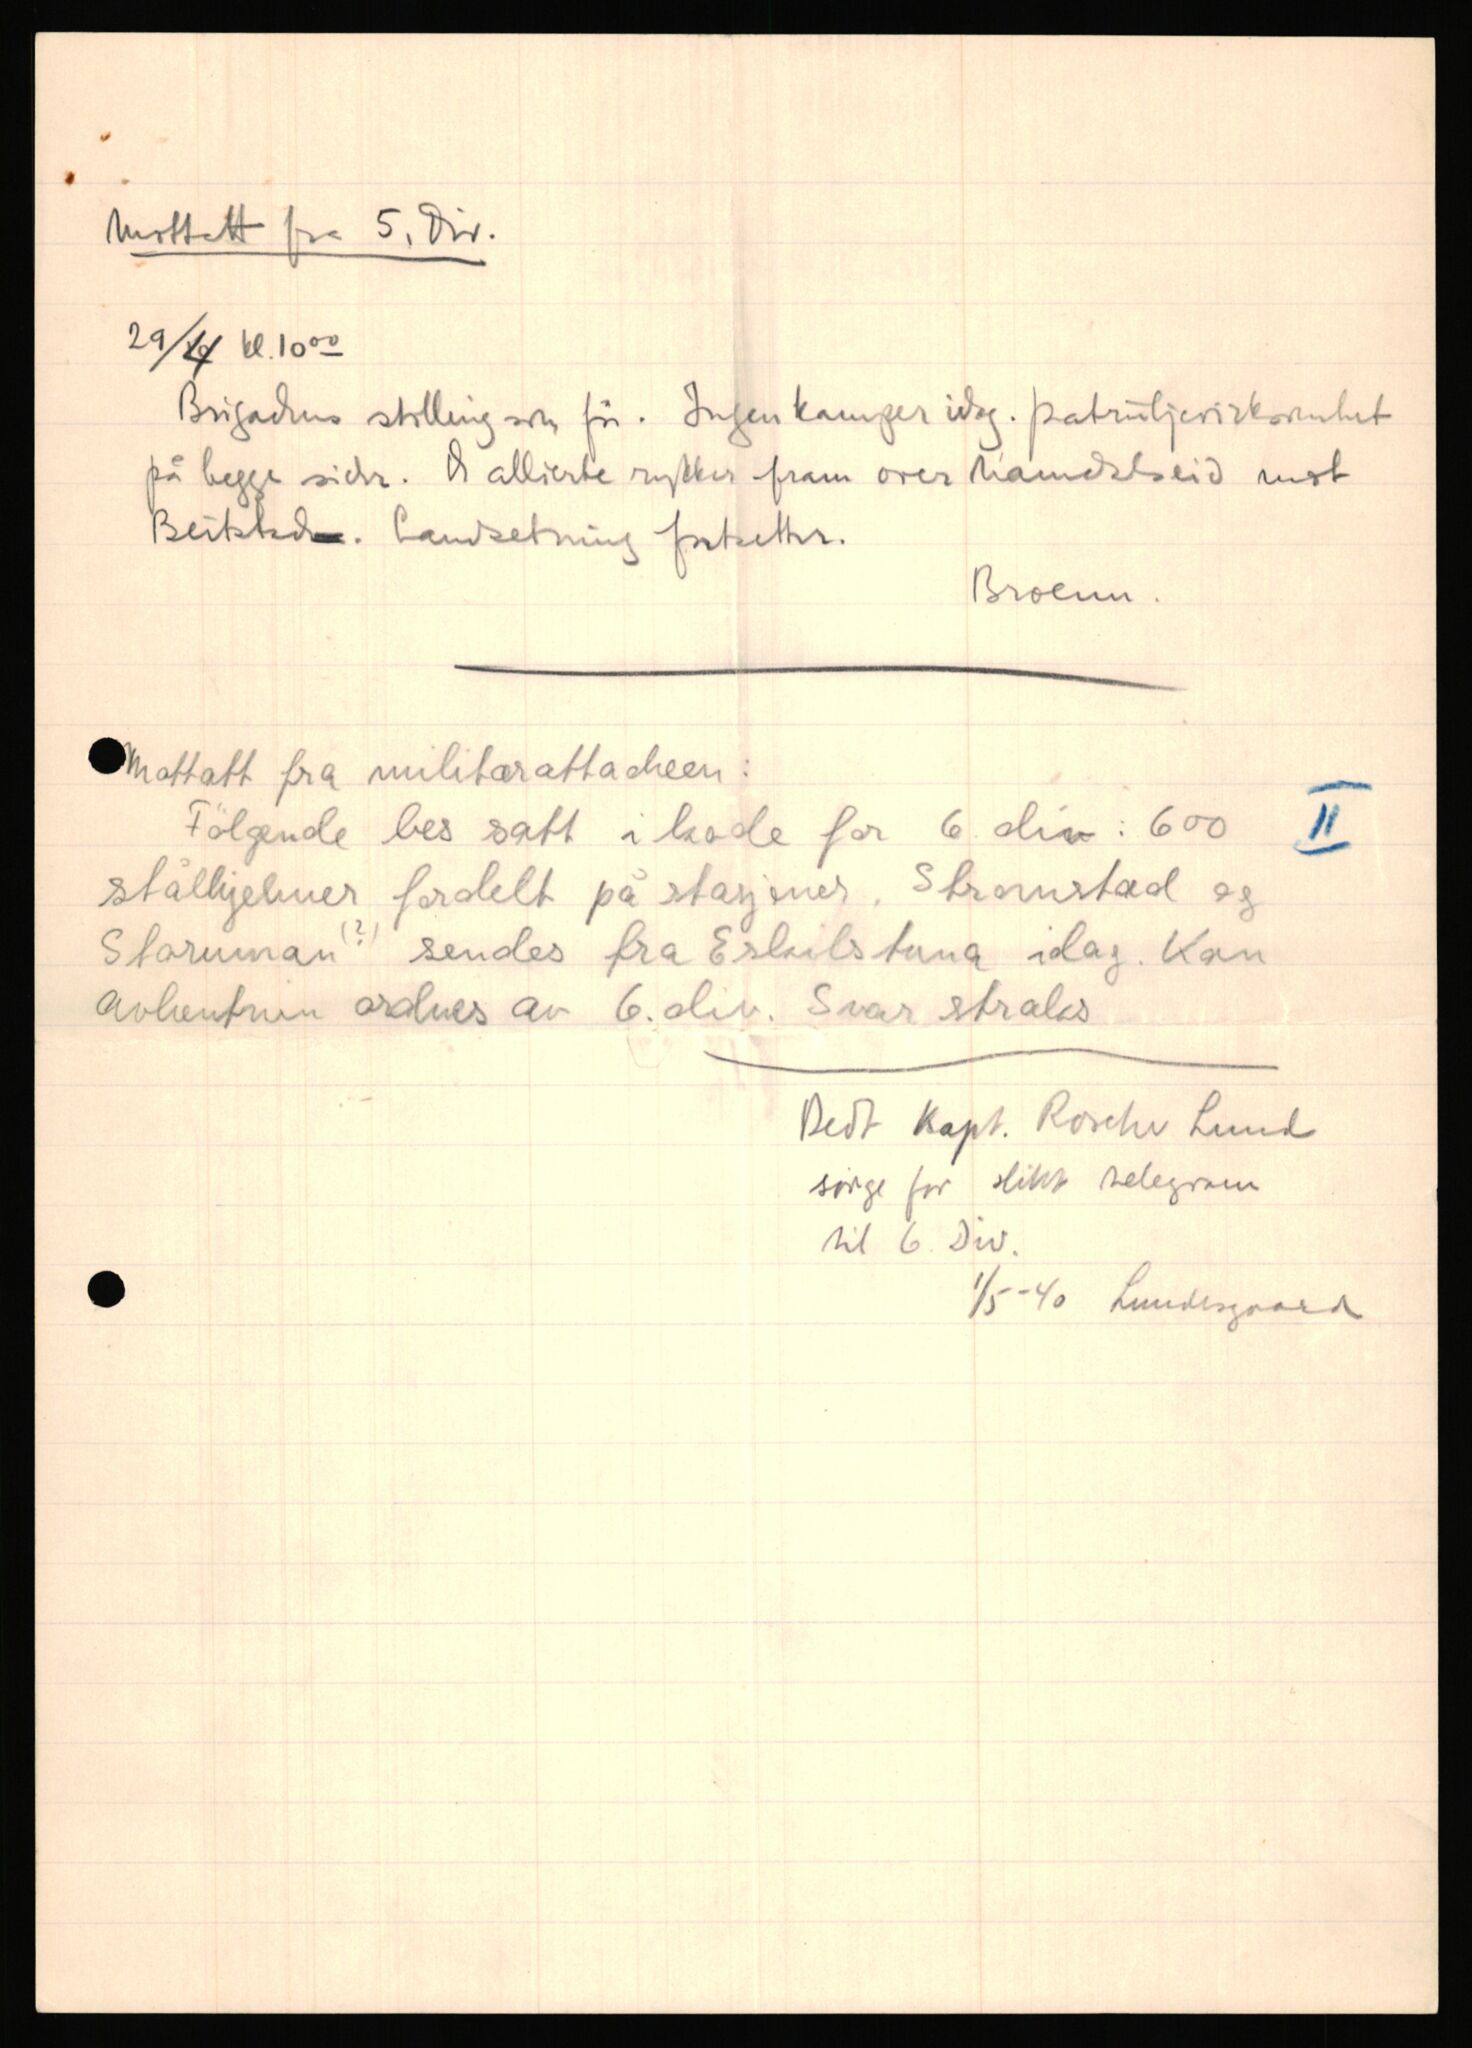 Mottatt fra 5. Div.
29/4 kl. 10⁰⁰
Brigadens stilling som før. Ingen kamper idag. patruljevirksomhet
på begge sider. De allierte rykker fram over Namdalseid mot
Beitstad. Landsetning fortsetter.
Broenn.
Mottatt fra militærattacheen:
Følgende bes satt i kode for 6 div: 600
II
stålhjelmer fordelt på stasjoner. Strømstad og
Storuman (?) sendes fra Eskilstuna idag. Kan
avhentnin ordnes av 6. div. Svar straks
Bedt Kapt. Roscher Lund
sørge for slikt telegram
til 6. Div.
1/5-40 Lundesgaard